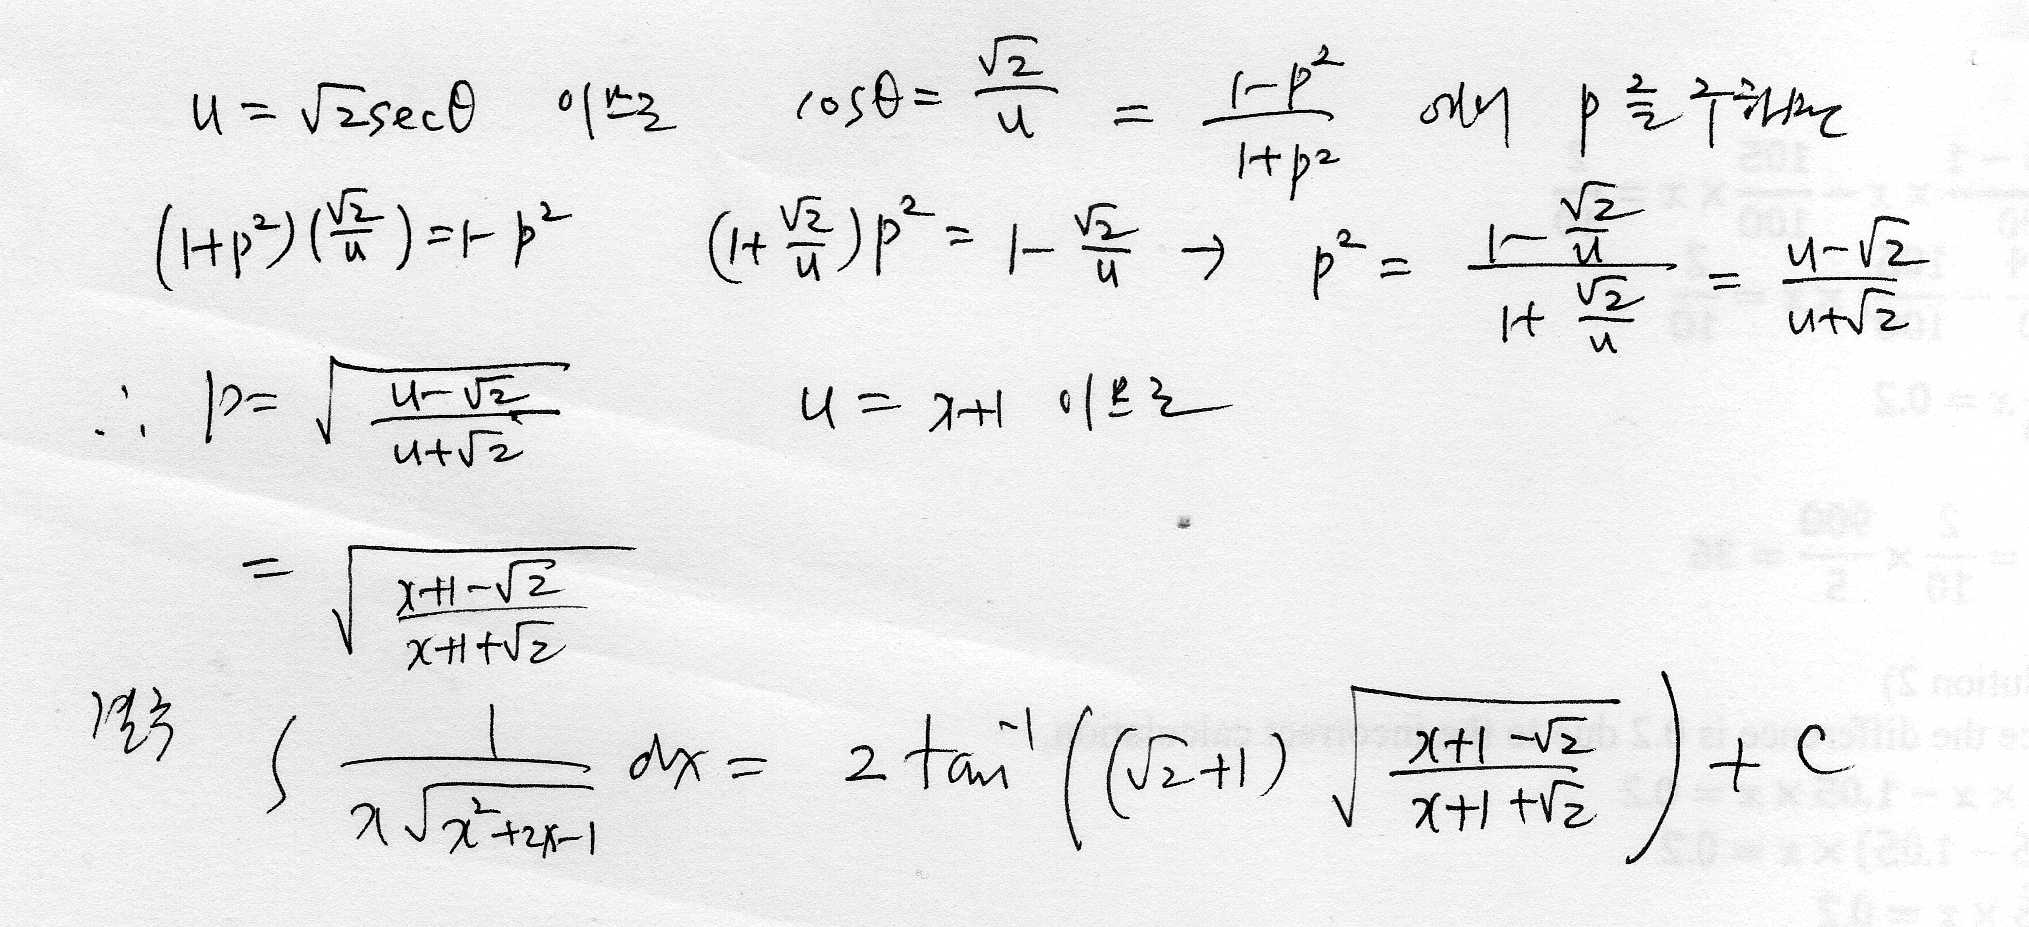 u = √2 secθ 이므로 cosθ = √2/u = (1-p²)/(1+p²) 에서 p를 구하면
(1+p²)(√2/u) = 1-p² (1+√2/u)p² = 1-√2/u → p² = (1-√2/u)/(1+√2/u) = (u-√2)/(u+√2)
∴ p = √((u-√2)/(u+√2)) u = x+1 이므로
= √((x+1-√2)/(x+1+√2))
결국 ∫ 1/(x√(x²+2x-1)) dx = 2 tan⁻¹((√2+1)√((x+1-√2)/(x+1+√2))) + C